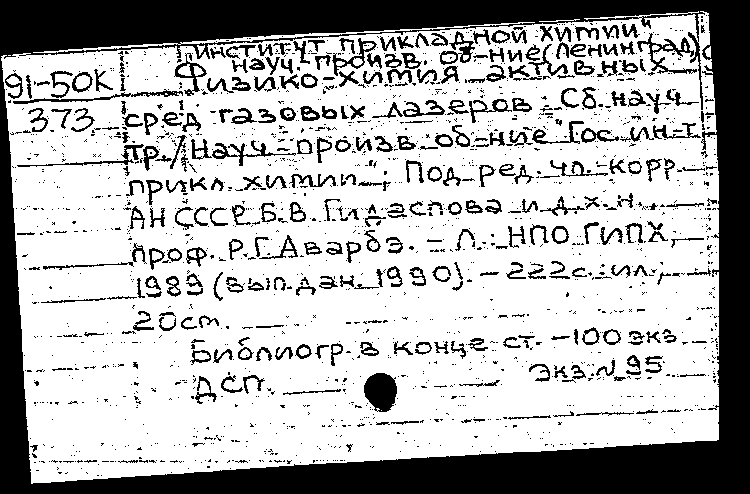 "институт прикладной химии"
науч.-произв. об-ние (Ленинград)
91-50К
Физико-химия активных
373
сред газовых лазеров: Сб. науч.
тр. / Науч.-произв. об-ние "Гос. ин-т
прикл. химии"; Под ред. чл.-корр.
АН СССР Б.В. Гидаспова и д.х.н.,
проф. Р.Г. Аварбэ. - Л.: НПО ГИПХ,
1989 (вып. дан. 1990). - 222 с.: ил.;
20 см.
Библиогр. в конце ст. - 100 экз.
ДСП.
Экз. N 95